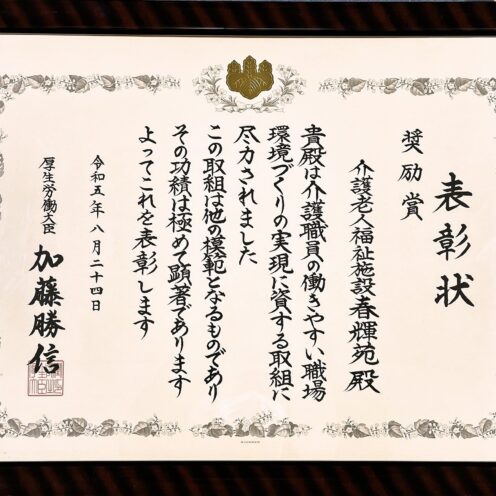 表彰状
奨励賞
介護老人福祉施設春輝苑殿
貴殿は介護職員の働きやすい職場
環境づくりの実現に資する取組に
尽力されました
この取組は他の模範となるものであり
その功績は極めて顕著であります
よってこれを表彰します
令和五年八月二十四日
厚生労働大臣
加藤勝信